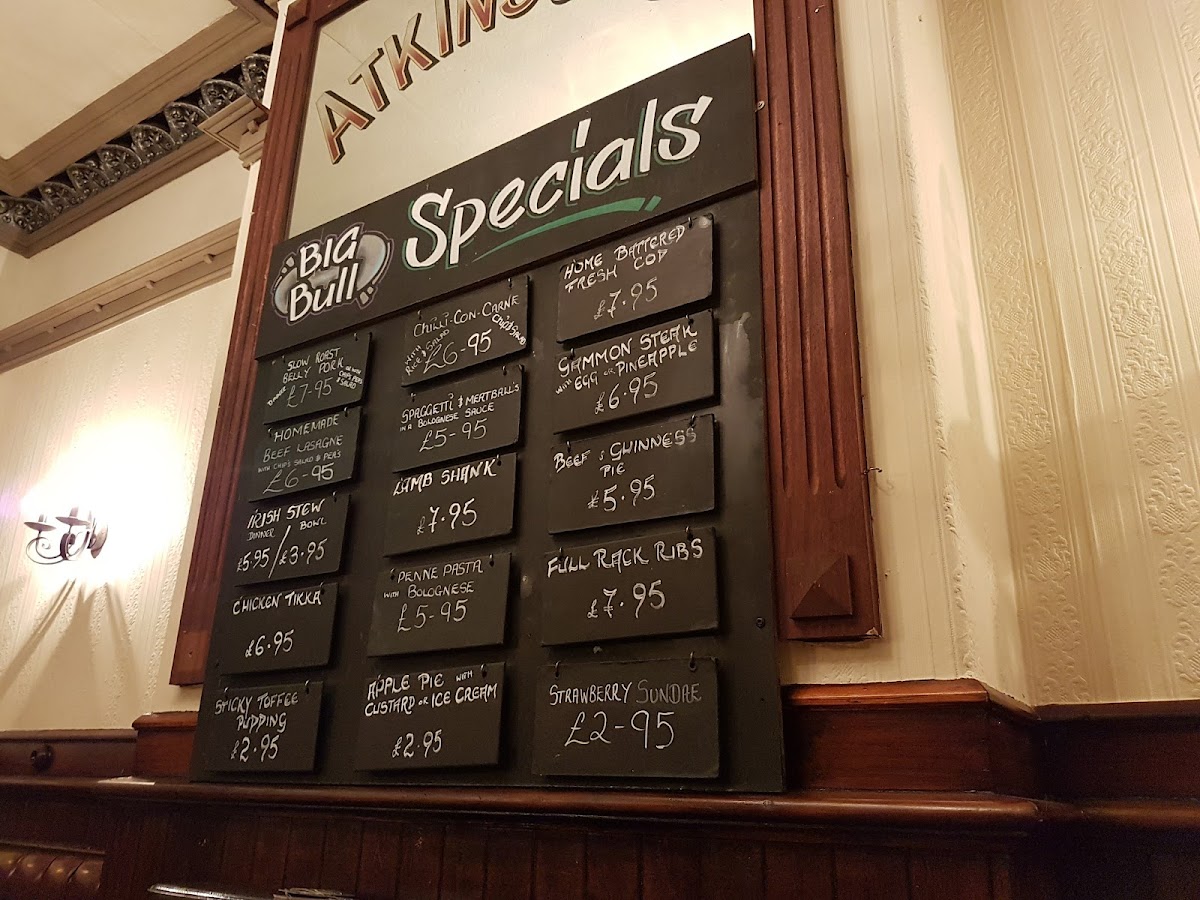 ATKINS
BIG
Bull
Specials
SLOW ROAST
BELLY PORK
£7-95
HOMEMADE
BEEF LASAGNE
WITH CHIP'S SALAD & PEA'S
£6-95
IRISH STEW
DINNER BOWL
£5.95/£3.95
CHICKEN TIKKA
£6.95
STICKY TOFFEE
PUDDING
£2.95
CHILLI-CON-CARNE
WITH
RICE & SALAD
CHIP'S SALAD
£6-95
SPAGGETTI & MEATBALL'S
IN A BOLOGNESE SAUCE
£5-95
LAMB SHANK
£7.95
PENNE PASTA
WITH BOLOGNESE
£5-95
APPLE PIE WITH
CUSTARD OR ICE CREAM
£2.95
HOME BATTERED
FRESH COD
£7.95
GAMMON STEAK
WITH EGG OR PINEAPPLE
£6.95
BEEF & GUINNESS
PIE
£5.95
FULL RACK RIBS
£7.95
STRAWBERRY SUNDAE
£2-95